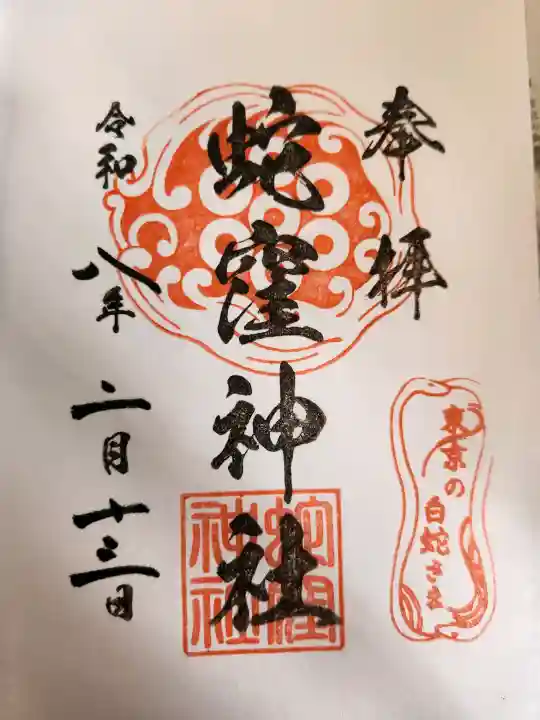 奉拝
東京の
白蛇さま
蛇窪神社
蛇窪
神社
令和八年
二月十三日